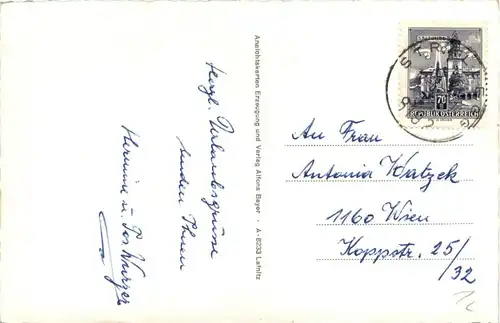 Herzl. Urlaubsgrüsse
senden Ihnen
Hermine u. Jos. Wurzer
Ansichtskarten Erzeugung und Verlag Alfons Bayer · A-8233 Lafnitz
SALZBURG
70
REPUBLIK ÖSTERREICH
An Frau
Antonia Watzek
1160 Wien
Koppstr. 25/
/32